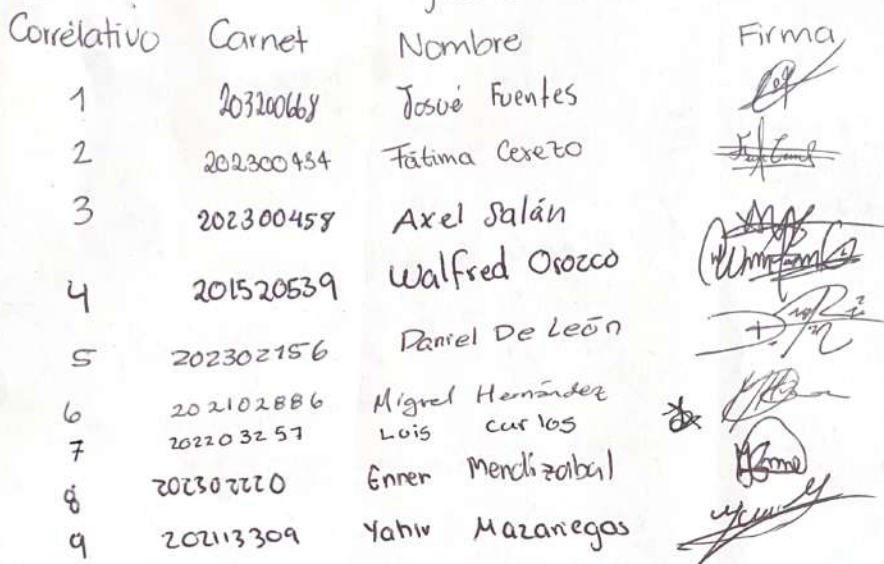 Correlativo Carnet Nombre Firma
1 203200668 Josué Fuentes
2 202300434 Fátima Cerezo
3 202300458 Axel Salán
4 201520539 Walfred Orozco
5 202302156 Daniel De León
6 202102886 Miguel Hernández
7 202203257 Luis Carlos
8 202302220 Enner Mendizabal
9 202113309 Yahiv Mazariegos